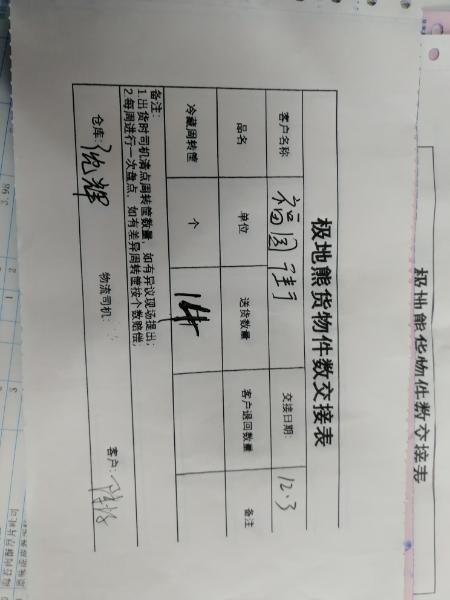 极地熊货物件数交接表
客户名称 福图 交接日期: 12.3
品名 单位 送货数量 客户退回数量 备注
冷藏周转筐 个 14
备注:
1.出货时司机清点周转筐数量，如有异议现场提出;
2.每周进行一次盘点，如有差异周转筐按个数赔偿;
仓库: 沈辉 物流司机: 客户:
极地熊货物件数交接表